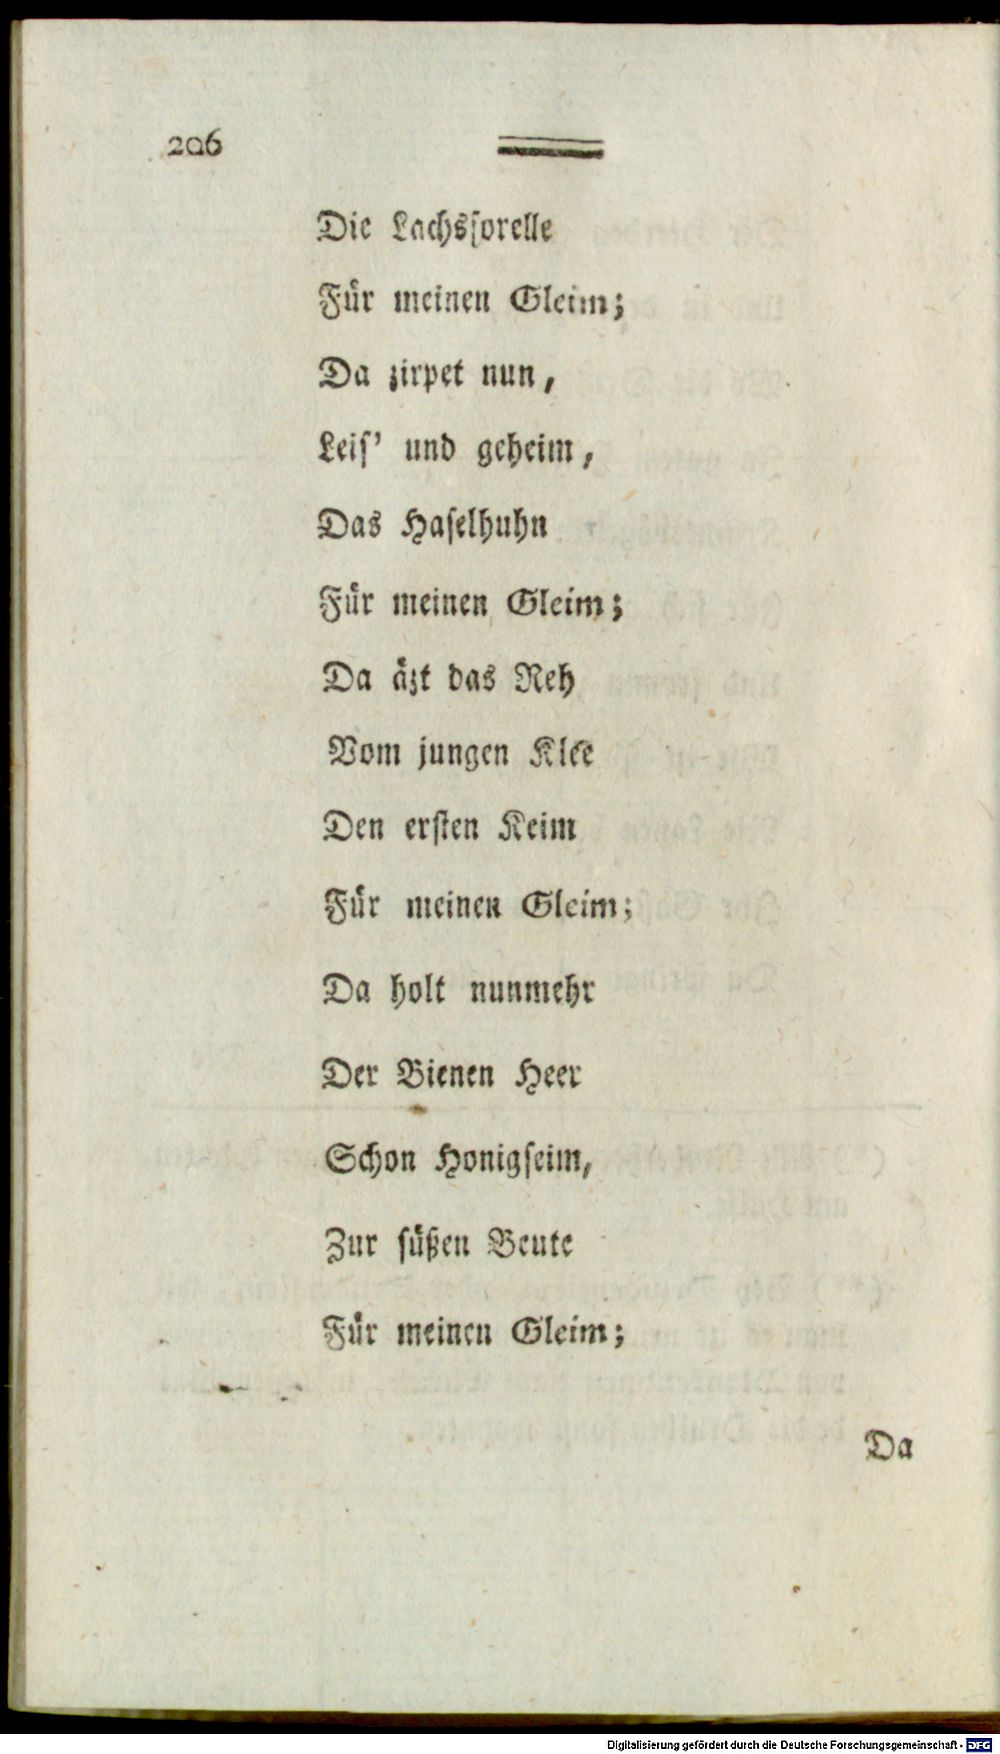 206
Die Lachsforelle
Für meinen Gleim;
Da zirpet nun,
Leis' und geheim,
Das Haselhuhn
Für meinen Gleim;
Da äzt das Reh
Vom jungen Klee
Den ersten Keim
Für meinen Gleim;
Da holt nunmehr
Der Bienen Heer
Schon Honigseim,
Zur süßen Beute
Für meinen Gleim;
Da
Digitalisierung gefördert durch die Deutsche Forschungsgemeinschaft - DFG